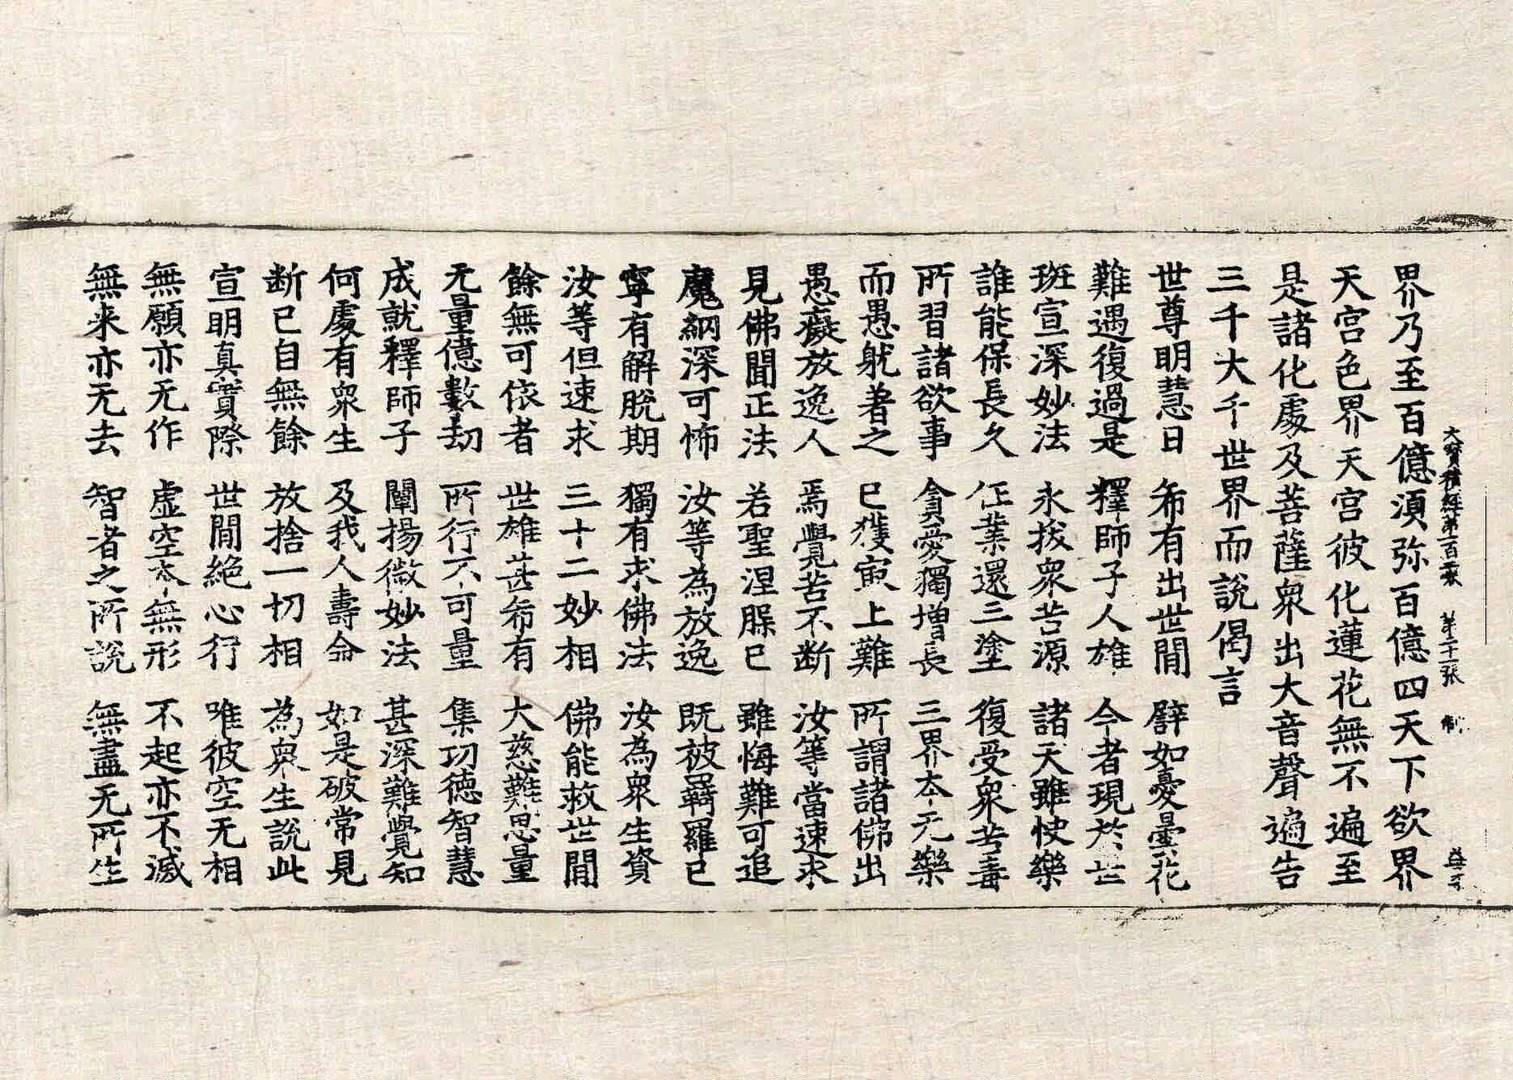 大寶積經第一百五卷 第二十一張 制
界乃至百億湏弥百億四天下欲界
天宫色界天宫彼化蓮花無不遍至
是諸化處及菩薩衆出大音聲遍告
三千大千世界而說偈言
世尊明慧日 希有出世間 辟如憂曇花
難遇復過是 釋師子人雄 今者現於世
班宣深妙法 永拔衆苦源 諸天雖快樂
誰能保長久 任業還三塗 復受衆苦毒
所習諸欲事 貪愛獨增長 三界本无樂
而愚躭著之 已獲寅上難 所謂諸佛出
愚癡放逸人 焉覺苦不断 汝等當速求
見佛聞正法 若聖涅槃已 雖悔難可追
魔網深可怖 汝等為放逸 既被羂羅已
寧有解脫期 獨有求佛法 汝為衆生資
汝等但速求 三十二妙相 佛能救世間
餘無可依者 世雄甚希有 大慈難思量
无量億數劫 所行不可量 集功德智慧
成就釋師子 闡揚微妙法 甚深難覺知
何處有衆生 及我人壽命 如是破常見
断已自無餘 放捨一切相 為衆生說此
宣明真實際 世間絶心行 唯彼空无相
無願亦无作 虛空本無形 不起亦不滅
無来亦无去 智者之所說 無盡无所生